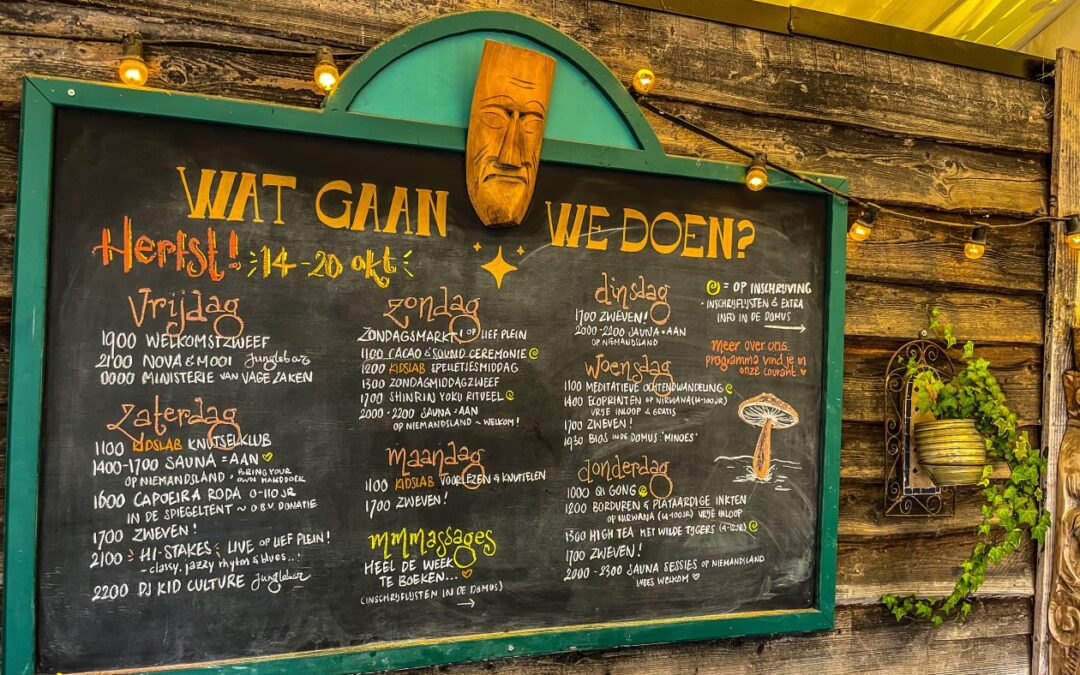 WAT GAAN WE DOEN?
Herfst! 14-20 okt
Vrijdag
1900 WELKOMSTZWEEF
2100 NOVA & MOOI Junglebar
0000 MINISTERIE VAN VAGE ZAKEN
Zaterdag
1100 KIDSLAB KNUTSELKLUB
1400-1700 SAUNA = AAN
OP NIEMANDSLAND • BRING YOUR OWN HANDDOEK
1600 CAPOEIRA RODA 0-110 JR
IN DE SPIEGELTENT ~ O.B.V. DONATIE
1700 ZWEVEN!
2100 HI-STAKES LIVE OP LIEF PLEIN!
- classy, jazzy rhythm & blues...!
2200 DJ KID CULTURE Junglebar
Zondag
ZONDAGSMARKT! OP LIEF PLEIN
1100 CACAO & SOUND CEREMONIE
1200 KIDSLAB SPELLETJESMIDDAG
1300 ZONDAGMIDDAGZWEEF
1700 SHINRIN YOKU RITUEEL
2000-2200 SAUNA = AAN
OP NIEMANDSLAND ~ WELKOM!
Maandag
1100 KIDSLAB VOORLEZEN & KNUTSELEN
1700 ZWEVEN!
mmmassages
HEEL DE WEEK
TE BOEKEN...
(INSCHRIJFLIJSTEN IN DE DOMUS)
dinsdag
1700 ZWEVEN!
2000-2200 SAUNA = AAN
OP NIEMANDSLAND
Woensdag
1100 MEDITATIEVE OCHTENDWANDELING
1400 ECOPRINTEN OP NIRWANA (4-100JR)
VRIJE INLOOP & GRATIS
1700 ZWEVEN!
1930 BIOS IN DE DOMUS 'MINOES'
donderdag
1000 QI GONG
1200 BORDUREN & PLATAARDIGE INKTEN
OP NIRWANA (4-100JR) VRIJE INLOOP
1300 HIGH TEA MET WILDE TIJGERS (4-12JR)
1700 ZWEVEN!
2000-2300 SAUNA SESSIES OP NIEMANDSLAND
WEES WELKOM
= OP INSCHRIJVING
- INSCHRIJFLIJSTEN & EXTRA
INFO IN DE DOMUS
meer over ons
programma vind je in
onze courant.